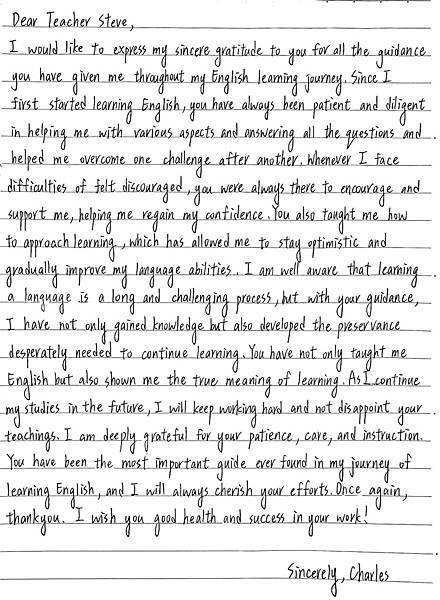 Dear Teacher Steve,
I would like to express my sincere gratitude to you for all the guidance
you have given me throughout my English learning journey. Since I
first started learning English, you have always been patient and diligent
in helping me with various aspects and answering all the questions and
helped me overcome one challenge after another. Whenever I face
difficulties of felt discouraged, you were always there to encourage and
support me, helping me regain my confidence. You also taught me how
to approach learning, which has allowed me to stay optimistic and
gradually improve my language abilities. I am well aware that learning
a language is a long and challenging process, but with your guidance,
I have not only gained knowledge but also developed the preservance
desperately needed to continue learning. You have not only taught me
English but also shown me the true meaning of learning. As I continue
my studies in the future, I will keep working hard and not disappoint your
teachings. I am deeply grateful for your patience, care, and instruction.
You have been the most important guide ever found in my journey of
learning English, and I will always cherish your efforts. Once again,
thankyou. I wish you good health and success in your work!
Sincerely, Charles